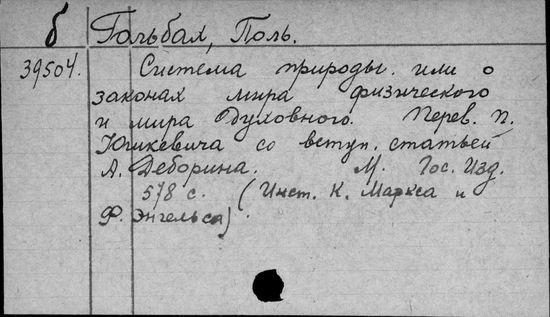 б Гольбах, Поль.
39504. Система природы или о
законах мира физического
и мира духовного. Перев. П.
Юшкевича со вступ. статьей
А. Деборина. М. Гос. Изд.
578 с. (Инст. К. Маркса и
Ф. Энгельса).